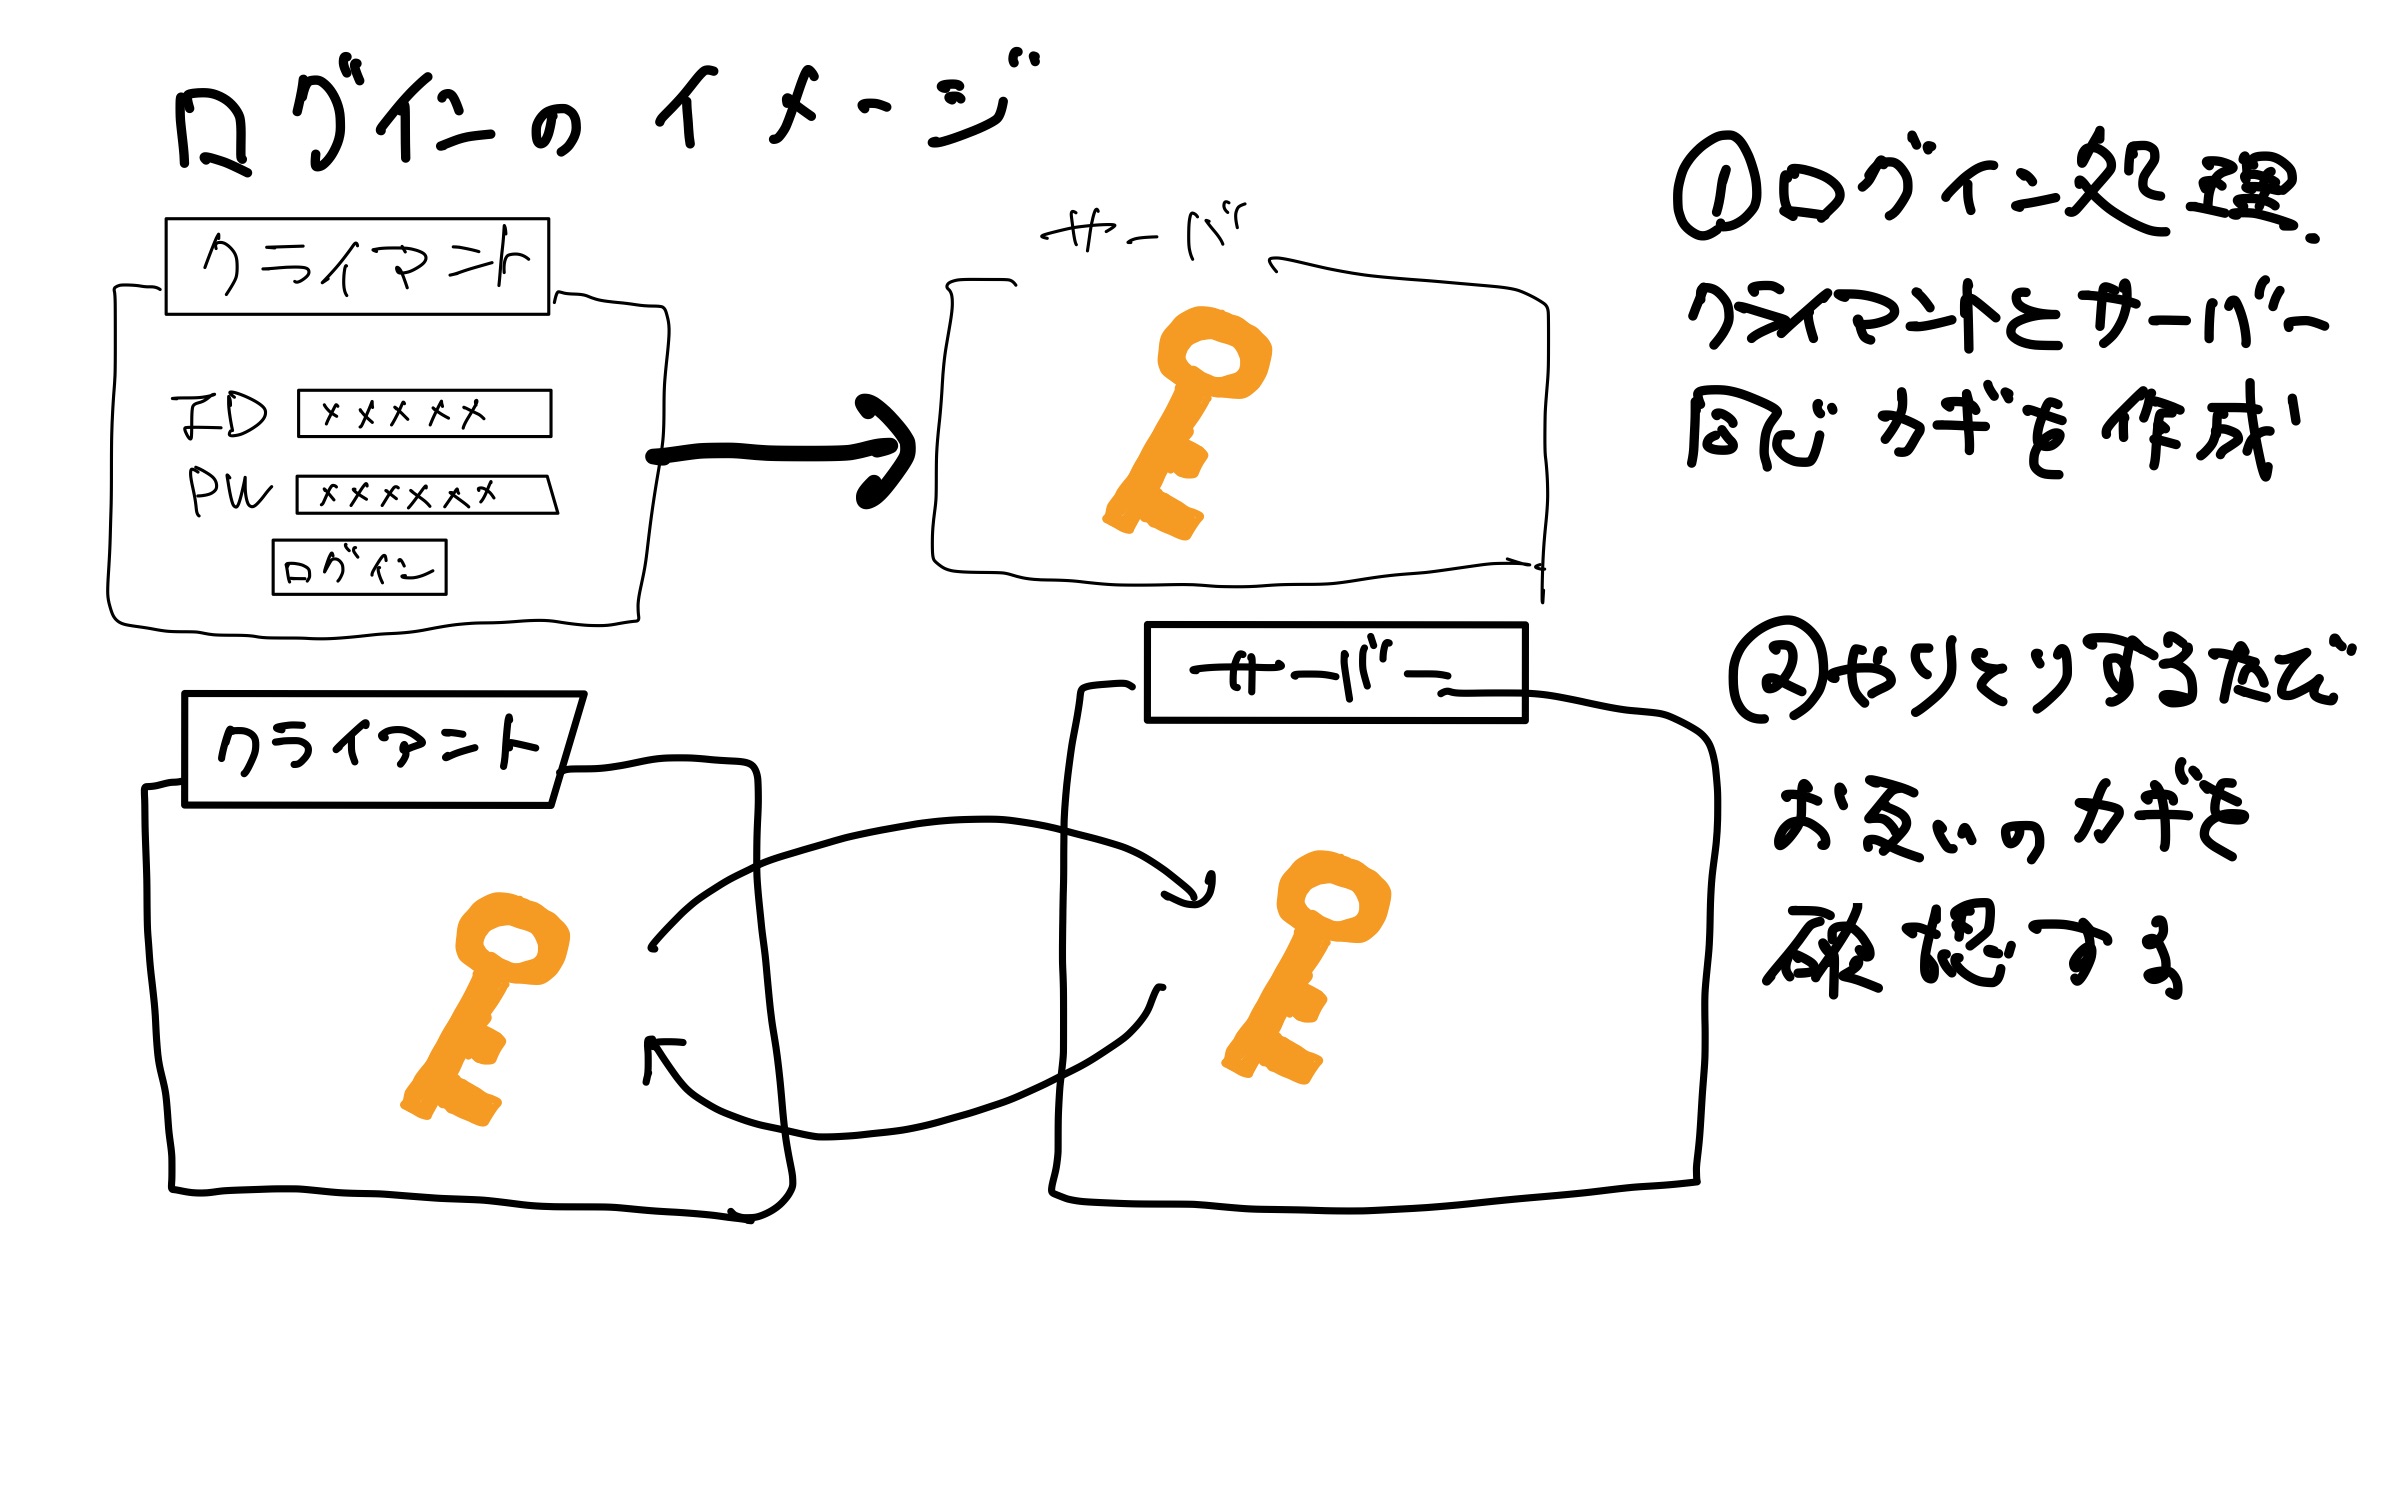 ログインのイメージ
クライアント
ID xxxxx
PW xxxxxx
ログイン
サーバ
①ログイン処理.
クライアントとサーバー
同じカギを作成
クライアント
サーバー
②やりとりするたびに
お互いのカギを
確認する